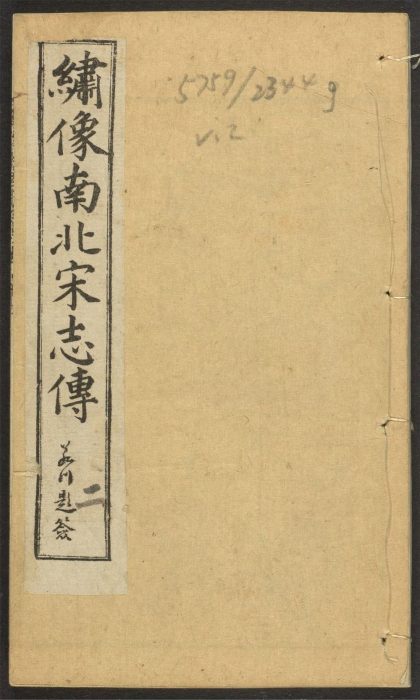 繡像南北宋志傳
二
題簽
5759/2344g
v.2